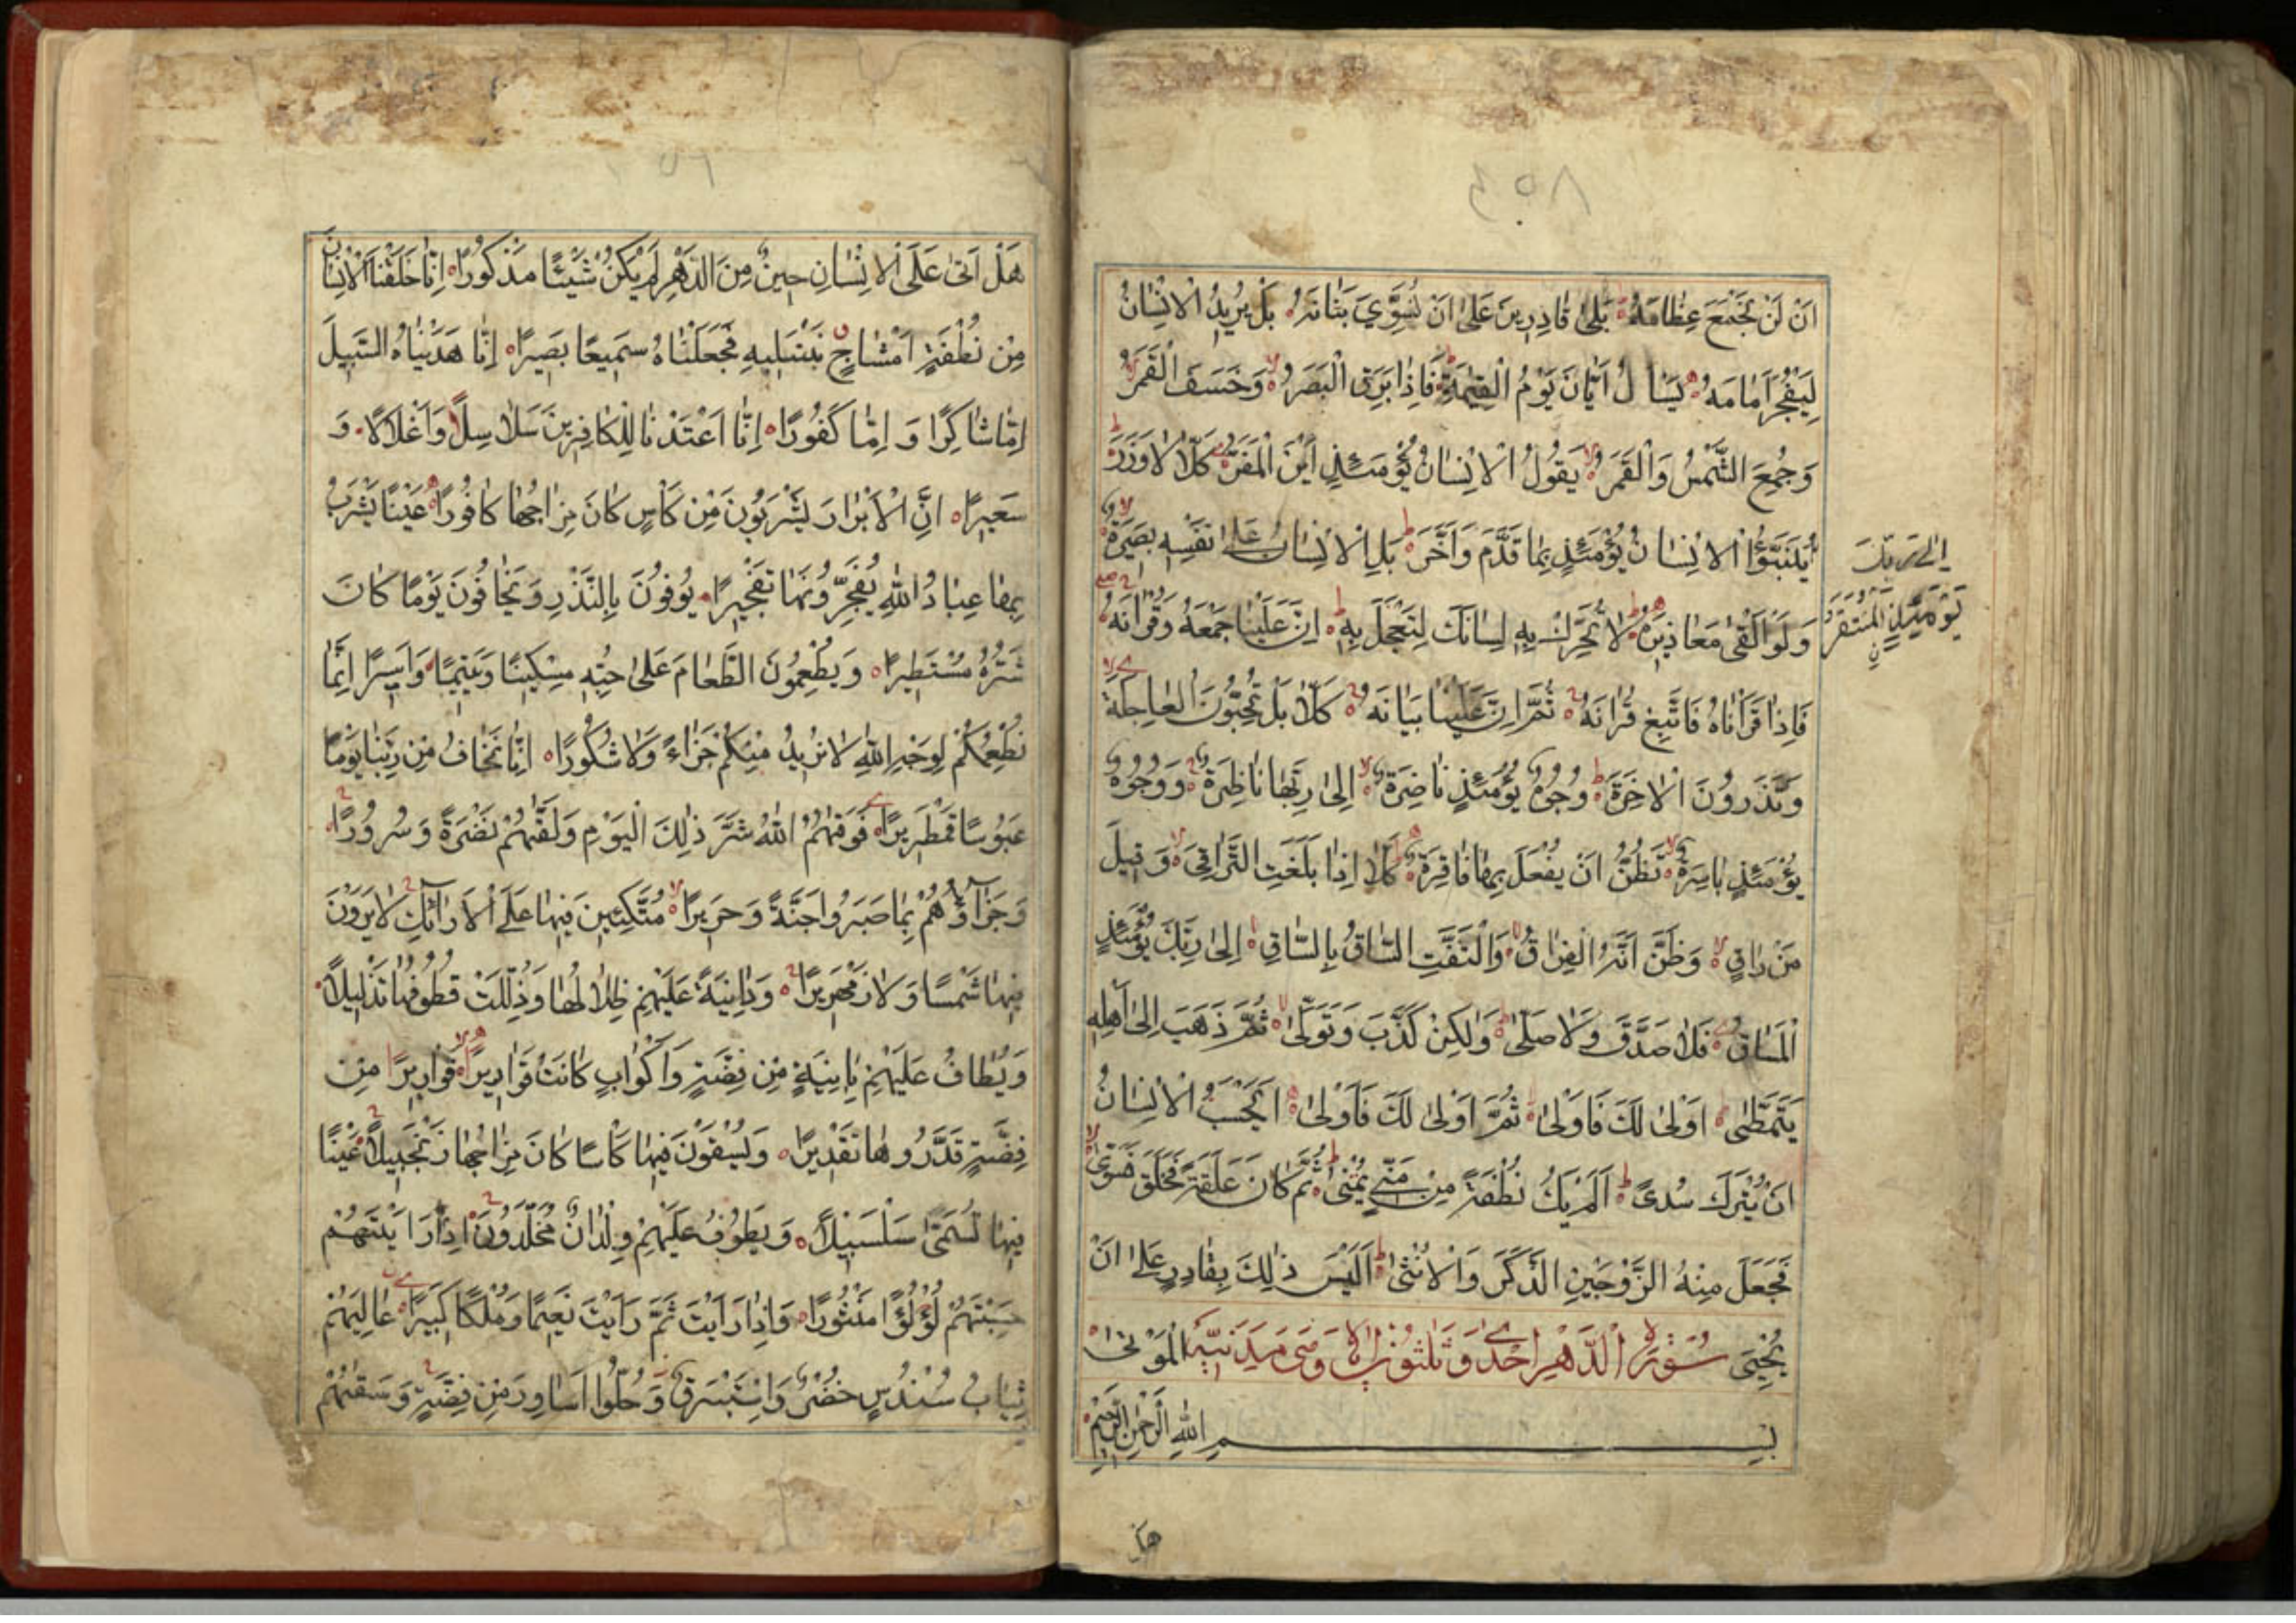 ٤٥٨
اَنْ لَنْ نَجْمَعَ عِظَامَهُ بَلٰى قَادِرِينَ عَلٰى اَنْ نُسَوِّيَ بَنَانَهُ بَلْ يُرِيدُ الْاِنْسَانُ
لِيَفْجُرَ اَمَامَهُ يَسْاَلُ اَيَّانَ يَوْمُ الْقِيٰمَةِ فَاِذَا بَرِقَ الْبَصَرُ وَخَسَفَ الْقَمَرُ
وَجُمِعَ الشَّمْسُ وَالْقَمَرُ يَقُولُ الْاِنْسَانُ يَوْمَئِذٍ اَيْنَ الْمَفَرُّ كَلَّا لَا وَزَرَ
اِلٰى رَبِّكَ
يَوْمَئِذٍ الْمُسْتَقَرُّ
يُنَبَّؤُا الْاِنْسَانُ يَوْمَئِذٍ بِمَا قَدَّمَ وَاَخَّرَ بَلِ الْاِنْسَانُ عَلٰى نَفْسِهِ بَصِيرَةٌ
وَلَوْ اَلْقٰى مَعَاذِيرَهُ لَا تُحَرِّكْ بِهِ لِسَانَكَ لِتَعْجَلَ بِهِ اِنَّ عَلَيْنَا جَمْعَهُ وَقُرْاٰنَهُ
فَاِذَا قَرَاْنَاهُ فَاتَّبِعْ قُرْاٰنَهُ ثُمَّ اِنَّ عَلَيْنَا بَيَانَهُ كَلَّا بَلْ تُحِبُّونَ الْعَاجِلَةَ
وَتَذَرُونَ الْاٰخِرَةَ وُجُوهٌ يَوْمَئِذٍ نَاضِرَةٌ اِلٰى رَبِّهَا نَاظِرَةٌ وَوُجُوهٌ
يَوْمَئِذٍ بَاسِرَةٌ تَظُنُّ اَنْ يُفْعَلَ بِهَا فَاقِرَةٌ كَلَّا اِذَا بَلَغَتِ التَّرَاقِيَ وَقِيلَ
مَنْ رَاقٍ وَظَنَّ اَنَّهُ الْفِرَاقُ وَالْتَفَّتِ السَّاقُ بِالسَّاقِ اِلٰى رَبِّكَ يَوْمَئِذٍ
الْمَسَاقُ فَلَا صَدَّقَ وَلَا صَلّٰى وَلٰكِنْ كَذَّبَ وَتَوَلّٰى ثُمَّ ذَهَبَ اِلٰى اَهْلِهِ
يَتَمَطّٰى اَوْلٰى لَكَ فَاَوْلٰى ثُمَّ اَوْلٰى لَكَ فَاَوْلٰى اَيَحْسَبُ الْاِنْسَانُ
اَنْ يُتْرَكَ سُدًى اَلَمْ يَكُ نُطْفَةً مِنْ مَنِيٍّ يُمْنٰى ثُمَّ كَانَ عَلَقَةً فَخَلَقَ فَسَوّٰى
فَجَعَلَ مِنْهُ الزَّوْجَيْنِ الذَّكَرَ وَالْاُنْثٰى اَلَيْسَ ذٰلِكَ بِقَادِرٍ عَلٰى اَنْ
يُحْيِيَ الْمَوْتٰى سُورَةُ الدَّهْرِ اِحْدٰى وَثَلٰثُونَ اٰيَةً وَهِيَ مَدَنِيَّةٌ
بِسْمِ اللّٰهِ الرَّحْمٰنِ الرَّحِيمِ
هَلْ
هَلْ اَتٰى عَلَى الْاِنْسَانِ حِينٌ مِنَ الدَّهْرِ لَمْ يَكُنْ شَيْئًا مَذْكُورًا اِنَّا خَلَقْنَا الْاِنْسَانَ
مِنْ نُطْفَةٍ اَمْشَاجٍ نَبْتَلِيهِ فَجَعَلْنَاهُ سَمِيعًا بَصِيرًا اِنَّا هَدَيْنَاهُ السَّبِيلَ
اِمَّا شَاكِرًا وَاِمَّا كَفُورًا اِنَّا اَعْتَدْنَا لِلْكَافِرِينَ سَلَاسِلًا وَاَغْلَالًا وَ
سَعِيرًا اِنَّ الْاَبْرَارَ يَشْرَبُونَ مِنْ كَاْسٍ كَانَ مِزَاجُهَا كَافُورًا عَيْنًا يَشْرَبُ
بِهَا عِبَادُ اللّٰهِ يُفَجِّرُونَهَا تَفْجِيرًا يُوفُونَ بِالنَّذْرِ وَيَخَافُونَ يَوْمًا كَانَ
شَرُّهُ مُسْتَطِيرًا وَيُطْعِمُونَ الطَّعَامَ عَلٰى حُبِّهِ مِسْكِينًا وَيَتِيمًا وَاَسِيرًا اِنَّمَا
نُطْعِمُكُمْ لِوَجْهِ اللّٰهِ لَا نُرِيدُ مِنْكُمْ جَزَاءً وَلَا شُكُورًا اِنَّا نَخَافُ مِنْ رَبِّنَا يَوْمًا
عَبُوسًا قَمْطَرِيرًا فَوَقٰهُمُ اللّٰهُ شَرَّ ذٰلِكَ الْيَوْمِ وَلَقّٰهُمْ نَضْرَةً وَسُرُورًا
وَجَزَاؤُهُمْ بِمَا صَبَرُوا جَنَّةً وَحَرِيرًا مُتَّكِئِينَ فِيهَا عَلَى الْاَرَائِكِ لَا يَرَوْنَ
فِيهَا شَمْسًا وَلَا زَمْهَرِيرًا وَدَانِيَةً عَلَيْهِمْ ظِلَالُهَا وَذُلِّلَتْ قُطُوفُهَا تَذْلِيلًا
وَيُطَافُ عَلَيْهِمْ بِاٰنِيَةٍ مِنْ فِضَّةٍ وَاَكْوَابٍ كَانَتْ قَوَارِيرًا قَوَارِيرًا مِنْ
فِضَّةٍ قَدَّرُوهَا تَقْدِيرًا وَيُسْقَوْنَ فِيهَا كَاْسًا كَانَ مِزَاجُهَا زَنْجَبِيلًا عَيْنًا
فِيهَا تُسَمّٰى سَلْسَبِيلًا وَيَطُوفُ عَلَيْهِمْ وِلْدَانٌ مُخَلَّدُونَ اِذَا رَاَيْتَهُمْ
حَسِبْتَهُمْ لُؤْلُؤًا مَنْثُورًا وَاِذَا رَاَيْتَ ثَمَّ رَاَيْتَ نَعِيمًا وَمُلْكًا كَبِيرًا عَالِيَهُمْ
ثِيَابُ سُنْدُسٍ خُضْرٌ وَاِسْتَبْرَقٌ وَحُلُّوا اَسَاوِرَ مِنْ فِضَّةٍ وَسَقٰهُمْ